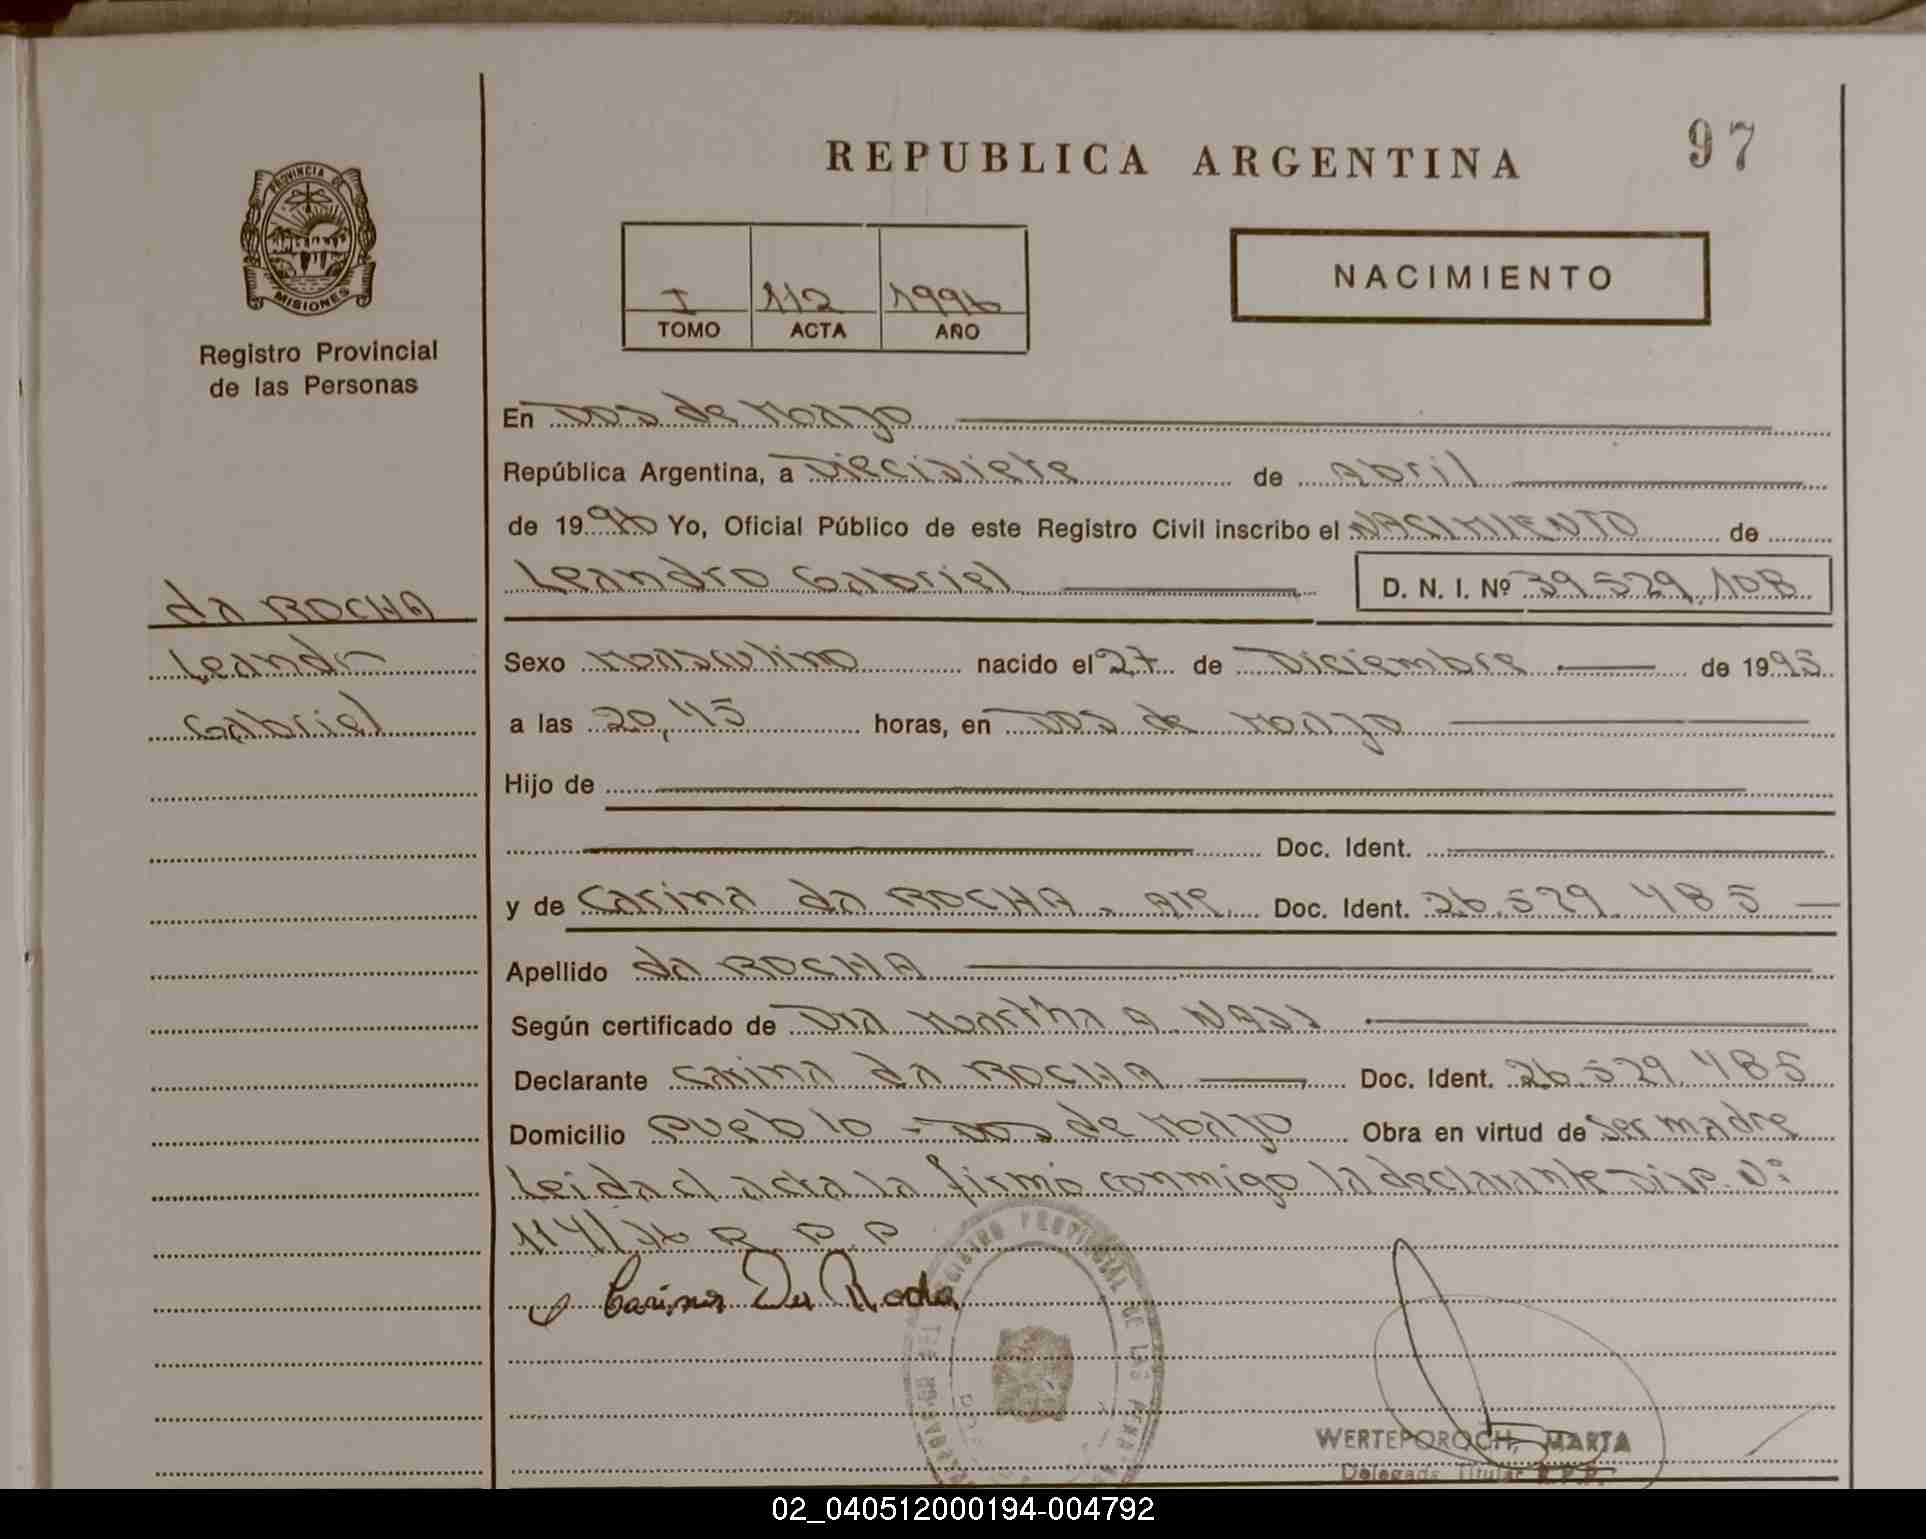 97
REPUBLICA ARGENTINA
PROVINCIA DE
MISIONES
Registro Provincial
de las Personas
I 112 1996
TOMO ACTA AÑO
NACIMIENTO
En Dos de Mayo
República Argentina, a Diecisiete de Abril
de 1996 Yo, Oficial Público de este Registro Civil inscribo el NACIMIENTO de
Leandro Gabriel D. N. I. Nº 39.529.108
da ROCHA
Leandro
Gabriel
Sexo Masculino nacido el 27 de Diciembre de 1995
a las 20,45 horas, en Dos de Mayo
Hijo de
Doc. Ident.
y de Carina da ROCHA. Arg. Doc. Ident. 26.529.485
Apellido da ROCHA
Según certificado de Dra Martha A.
Declarante Carina da ROCHA Doc. Ident. 26.529.485
Domicilio Pueblo - Dos de Mayo Obra en virtud de ser madre
Leida el acta la firmó conmigo la declarante Disp. Nº
114/76 R. P. P
Carina Da Rocha
REGISTRO PROVINCIAL DE LAS
WERTEPOROCH, MARTA
Delegada Titular R.P.P.
02_040512000194-004792